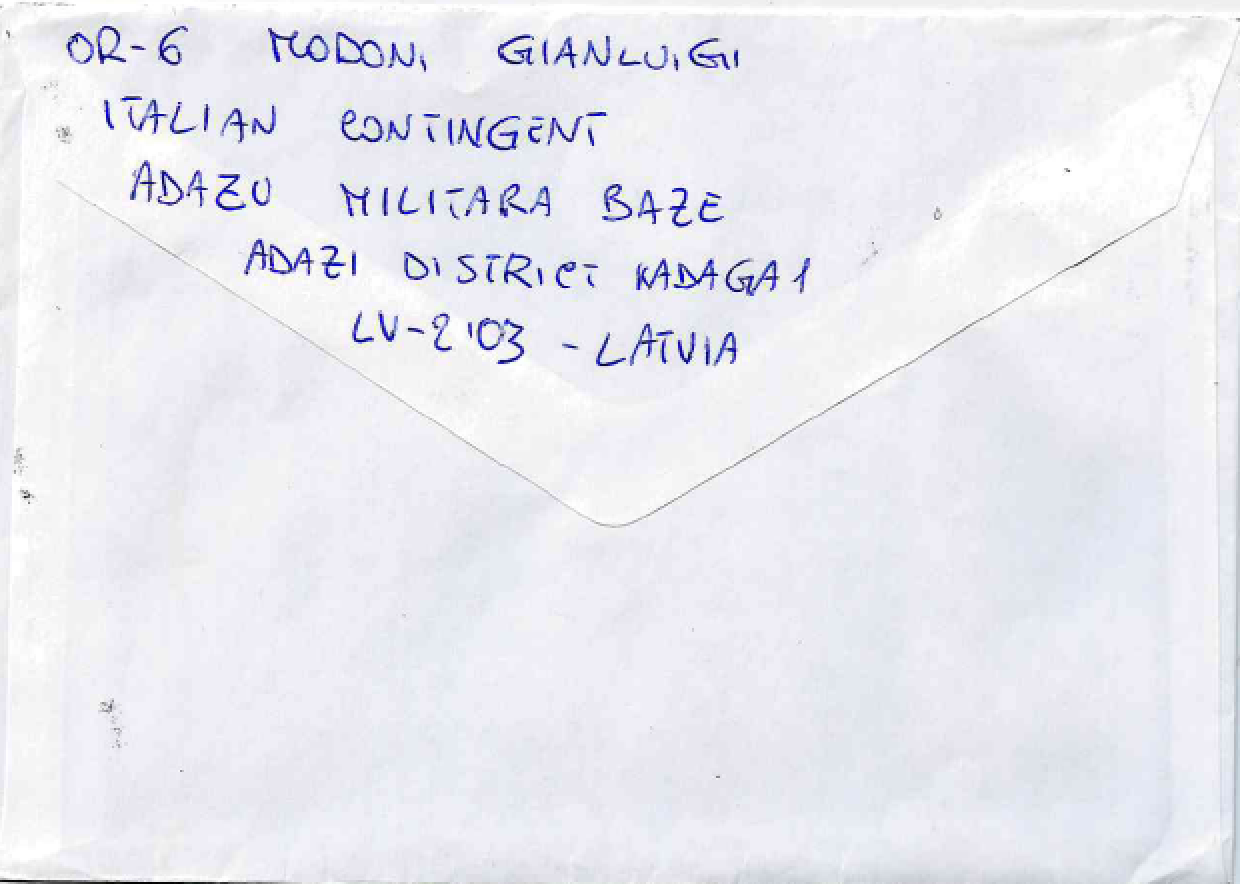 OR-6 MODONI GIANLUIGI
ITALIAN CONTINGENT
ADAZU MILITARA BAZE
ADAZI DISTRICT KADAGA 1
LV-2103 - LATVIA